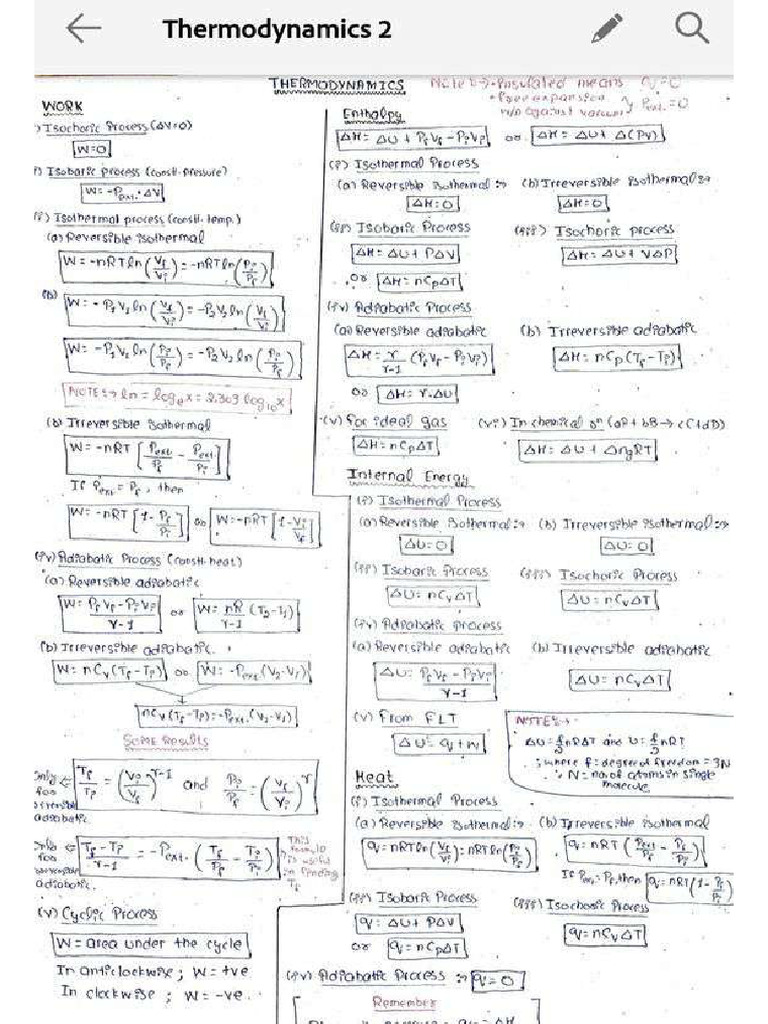 Thermodynamics 2
THERMODYNAMICS
Note :→ Insulated means q=0
• free expansion
n/n against vacuum } Pext.=0
WORK
i) Isochoric Process (ΔV=0)
W=0
i) Isobaric process (const. pressure)
W=-Pext.·ΔV
i) Isothermal process (const. temp.)
(a) Reversible isothermal
W=-nRT ln(Vf/Vi)=-nRT ln(Pi/Pf)
(b)
W=-P1V1 ln(Vf/Vi)=-P2V2 ln(Vf/Vi)
W=-P1V1 ln(Pi/Pf)=-P2V2 ln(Pi/Pf)
NOTE:→ ln = logex = 2.303 log10x
(b) Irreversible isothermal
W=-nRT [Pext/Pf - Pext/Pi]
If Pext=Pf, then
W=-nRT[1-Pf/Pi] or W=-nRT[1-Vi/Vf]
(iv) Adiabatic Process (const. heat)
(a) Reversible adiabatic
W=PfVf-PiVi/γ-1 or W=nR/γ-1 (T2-T1)
(b) Irreversible adiabatic.
W=nCv(Tf-Ti) or W=-Pext.(V2-V1)
nCv(Tf-Ti)=-Pext.(V2-V1)
SOME RESULTS
Only for reversible adiabatic
Tf/Ti=(Vi/Vf)^γ-1 and Pi/Pf=(Vf/Vi)^γ
Tf-Ti/γ-1=-Pext.(Tf/Pf-Ti/Pi)
This formula is useful in finding Tf
(v) Cyclic Process
W=area under the cycle
In anticlockwise; W=+ve
In clockwise; W=-ve.
Enthalpy
ΔH=ΔU+PfVf-PiVi or ΔH=ΔU+Δ(PV)
(i) Isothermal Process
(a) Reversible isothermal:→ (b) Irreversible isothermal:→
ΔH=0 ΔH=0
(ii) Isobaric Process (iii) Isochoric process
ΔH=ΔU+PΔV ΔH=ΔU+VΔP
or ΔH=nCpΔT
(iv) Adiabatic Process
(a) Reversible adiabatic (b) Irreversible adiabatic
ΔH=γ/γ-1 (PfVf-PiVi) ΔH=nCp(Tf-Ti)
or ΔH=γ.ΔU
(v) for ideal gas (vi) In chemical rxn (aA+bB→cC+dD)
ΔH=nCpΔT ΔH=ΔU+ΔngRT
Internal Energy
(i) Isothermal Process
(a) Reversible isothermal:→ (b) Irreversible isothermal:→
ΔU=0 ΔU=0
(ii) Isobaric Process (iii) Isochoric Process
ΔU=nCvΔT ΔU=nCvΔT
(iv) Adiabatic process
(a) Reversible adiabatic (b) Irreversible adiabatic
ΔU=PfVf-PiVi/γ-1 ΔU=nCvΔT
(v) From FLT
ΔU=q+w
NOTES:→
ΔU=f/2 nRΔT and U=f/2 nRT
;where f=degree of freedom=3N
N=no. of atoms in single molecule
Heat
(i) Isothermal Process
(a) Reversible isothermal:→ (b) Irreversible isothermal
q=nRT ln(Vf/Vi)=nRT ln(Pi/Pf) q=nRT(Pext/Pf-Pf/Pi)
If Pext=Pf, then q=nRT(1-Pf/Pi)
(ii) Isobaric Process (iii) Isochoric Process
q=ΔU+PΔV q=nCvΔT
or q=nCpΔT
(iv) Adiabatic Process:→ q=0
Remember